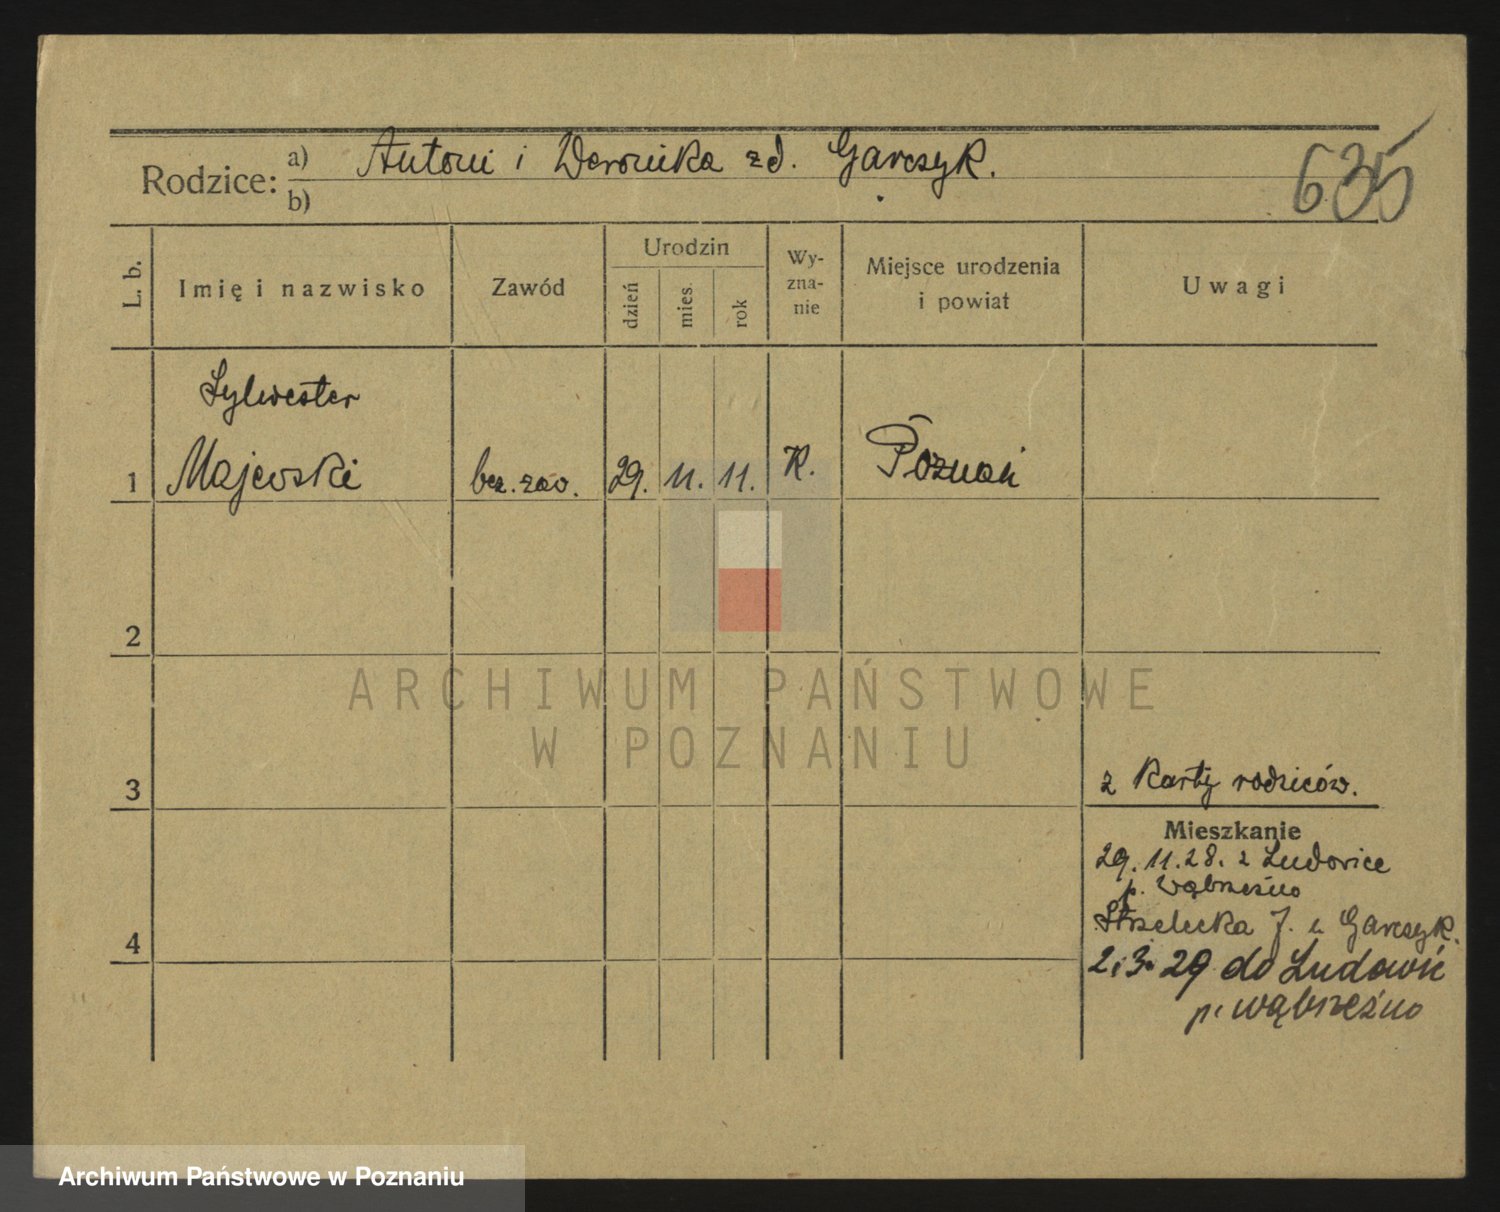 635
Rodzice: a) Antoni i Weronika zd. Garczyk.
b)
L. b.
Imię i nazwisko
Zawód
Urodzin
dzień
mies.
rok
Wy-
zna-
nie
Miejsce urodzenia
i powiat
Uwagi
Sylwester
1 Majewski bez. zaw. 29. 11. 11. K. Poznań
2
3
z Karty rodziców.
Mieszkanie
29. 11. 28. z Ludowice
p. Wąbrzeźno
Strzelecka 7. u Garczyk.
4
2. 3. 29 do Ludowic
p. Wąbrzeźno
ARCHIWUM PAŃSTWOWE
W POZNANIU
Archiwum Państwowe w Poznaniu